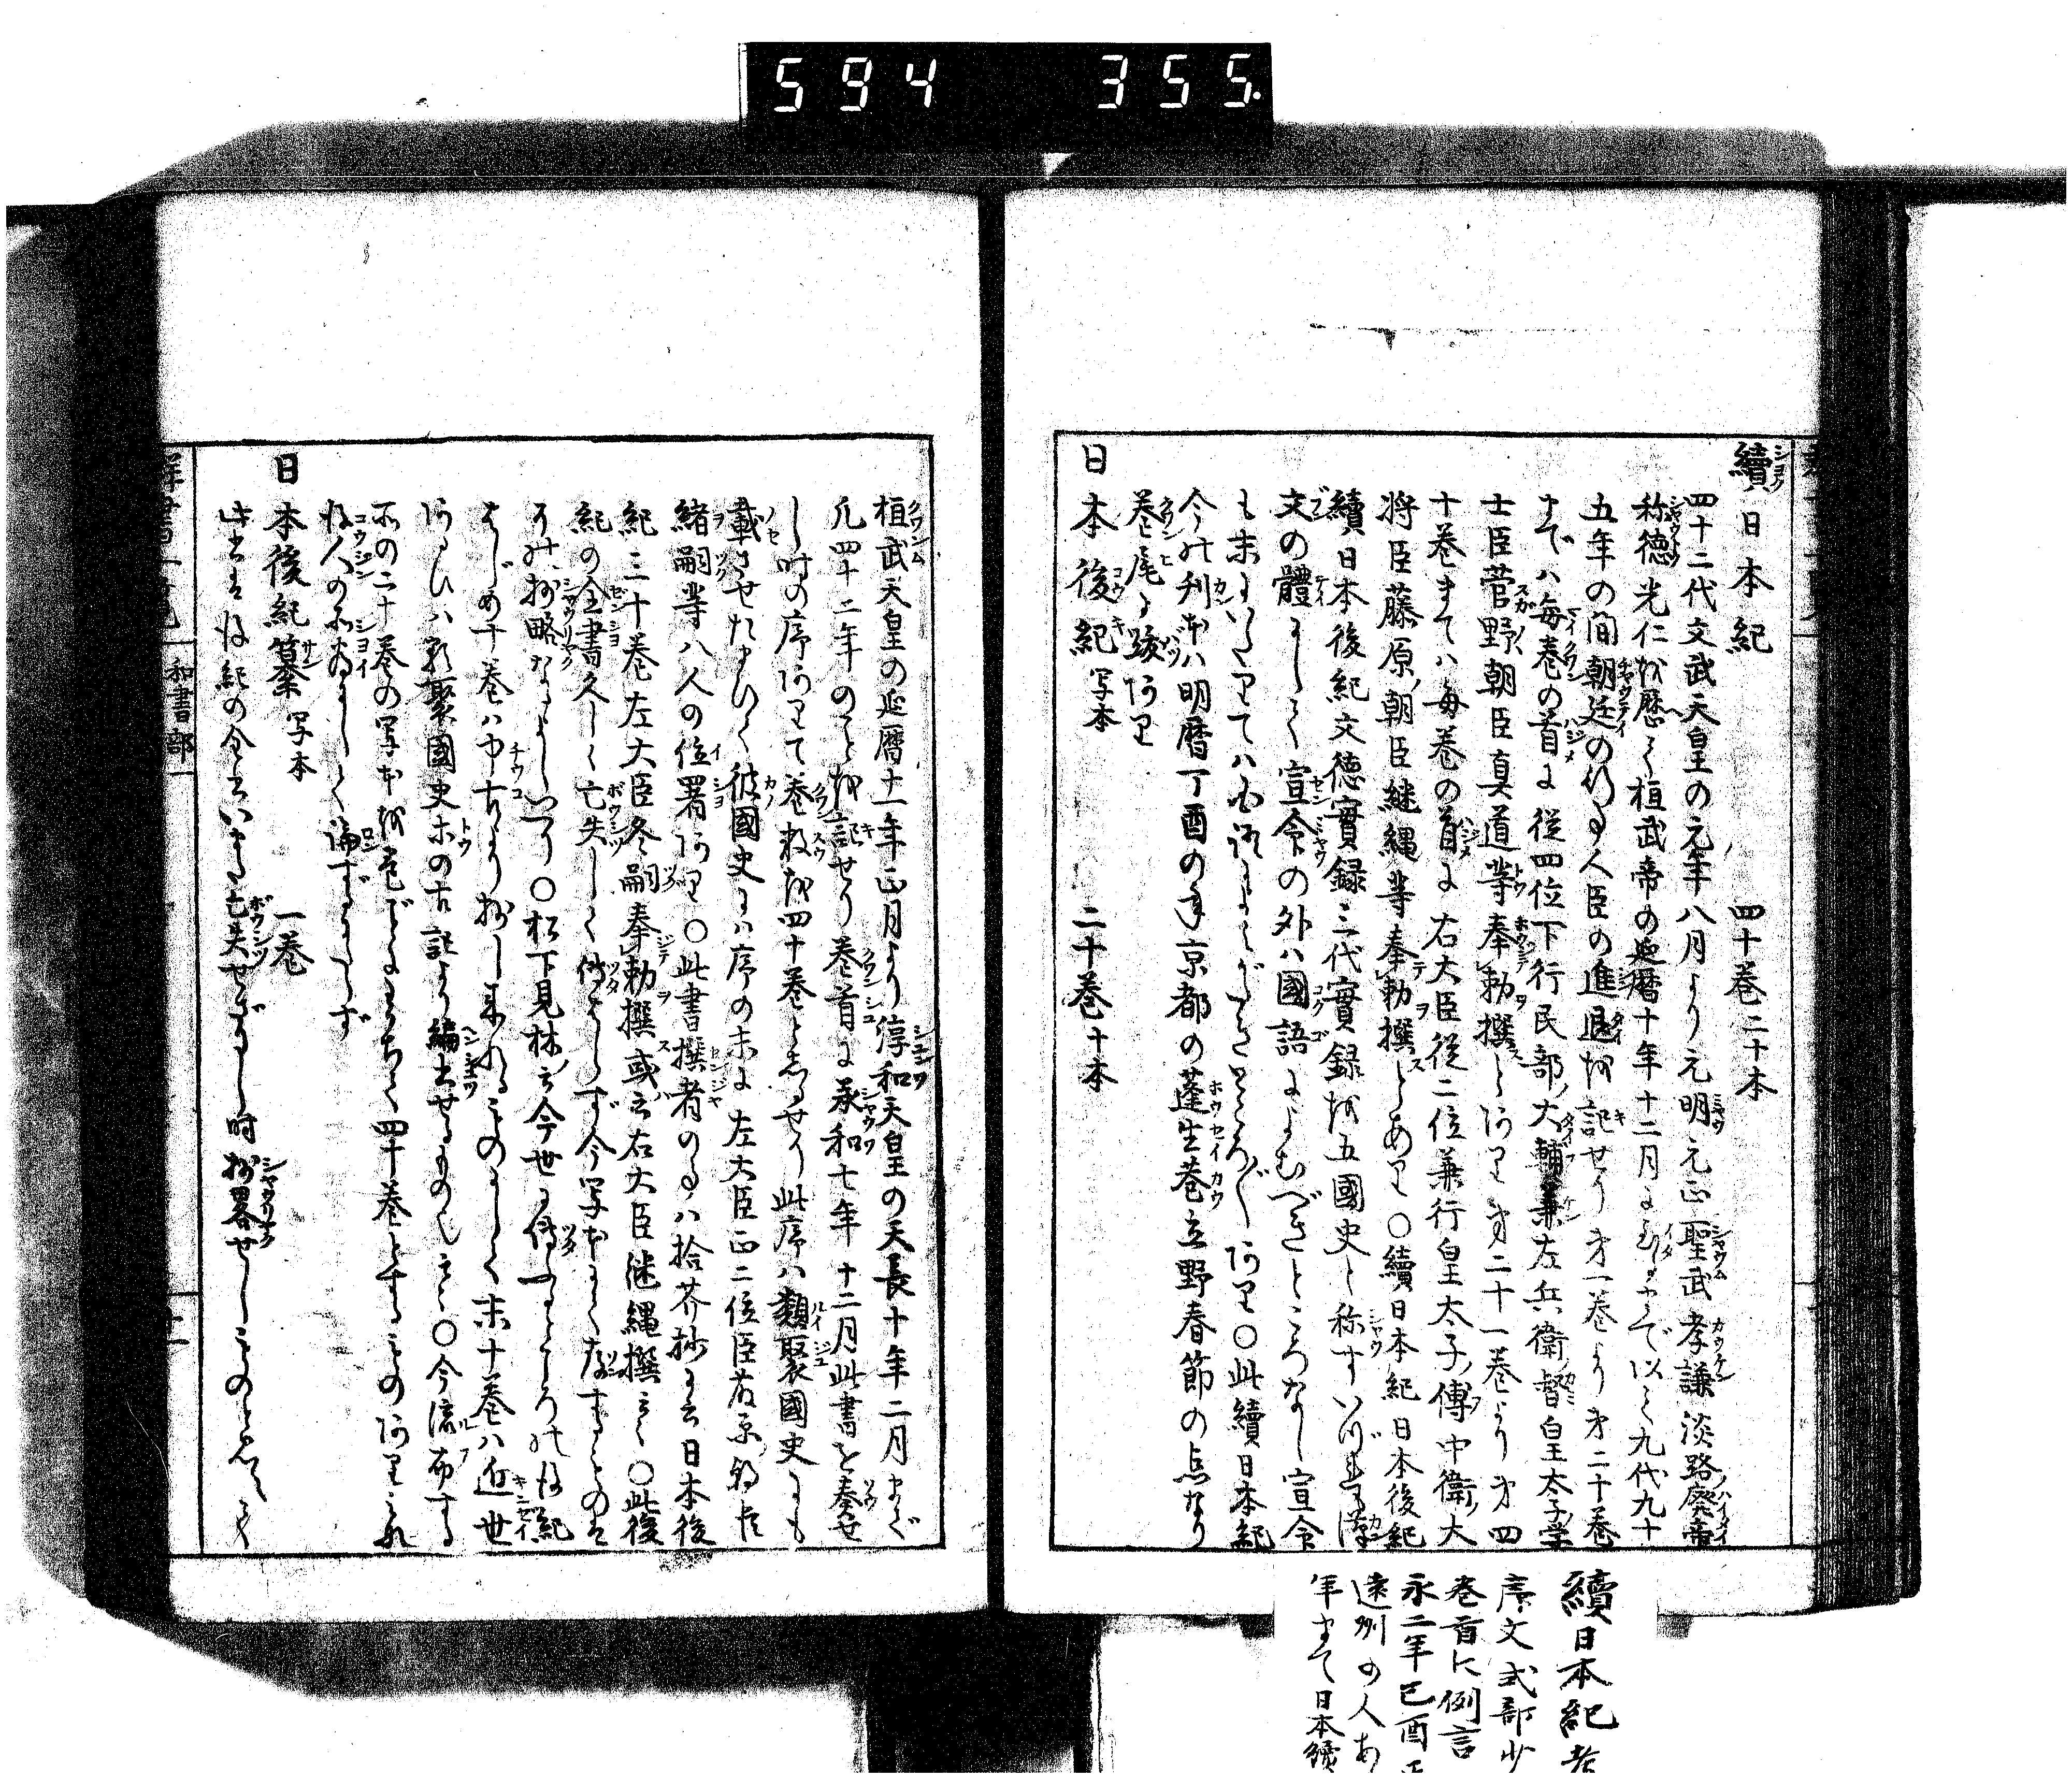 594 355.
續日本紀 四十巻二十本
四十二代文武天皇の元年八月より元明元正聖武孝謙淡路廃帝
称徳光仁を歴て桓武帝の延暦十年十二月に至るまで以上九代九十
五年の間朝廷の行事人臣の進退を記せり第一巻より第二十巻
までハ毎巻の首に従四位下行民部大輔兼左兵衛督皇太子学
士臣菅野朝臣真道等奉勅撰とあり第二十一巻より第四
十巻まてハ毎巻の首に右大臣従二位兼行皇太子傳中衛大
将臣藤原朝臣継縄等奉勅撰とあり○續日本紀日本後紀
續日本後紀文徳實録三代實録を五國史と称すいづれも漢
文の體にして宣命の外ハ國語によむべきところなし宣命
も末にいたりてハ
あり○此續日本紀
今の刊本ハ明暦丁酉の年京都の蓬生巷立野春節の点なり
巻尾に跋あり
日本後紀 写本 二十巻十本
續日本紀考
序文式部少
巻首に例言
永二年己酉正
遠州の人あ
年まて日本續
桓武天皇の延暦十一年正月より淳和天皇の天長十年二月まで
凡四十二年のことを記せり巻首に承和七年十二月此書を奏せ
し時の序ありて巻数を四十巻としるせり此序ハ類聚國史にも
載させたまひて彼國史にハ序の末に左大臣正二位臣藤原朝臣
緒嗣等八人の位署あり○此書撰者の事ハ拾芥抄に云日本後
紀三十巻左大臣冬嗣奉勅撰或云右大臣継縄撰云々○此後
紀の全書久しく亡失して傳はらず今写本
○松下見林云今世に傳
はじめ十巻ハ中古より抄し来れるものにして末十巻ハ近世
あるひハ類聚國史ホの古記より編出せるものと云々○今流布する
所の二十巻の写本
四十巻とするものあり
後人の所為にして論ずるにたらず
日本後紀纂 写本 一巻
此書は後紀の全書いまだ亡失せざりし時抄畧せしものと見えて
群書一覧 和書部一 十二